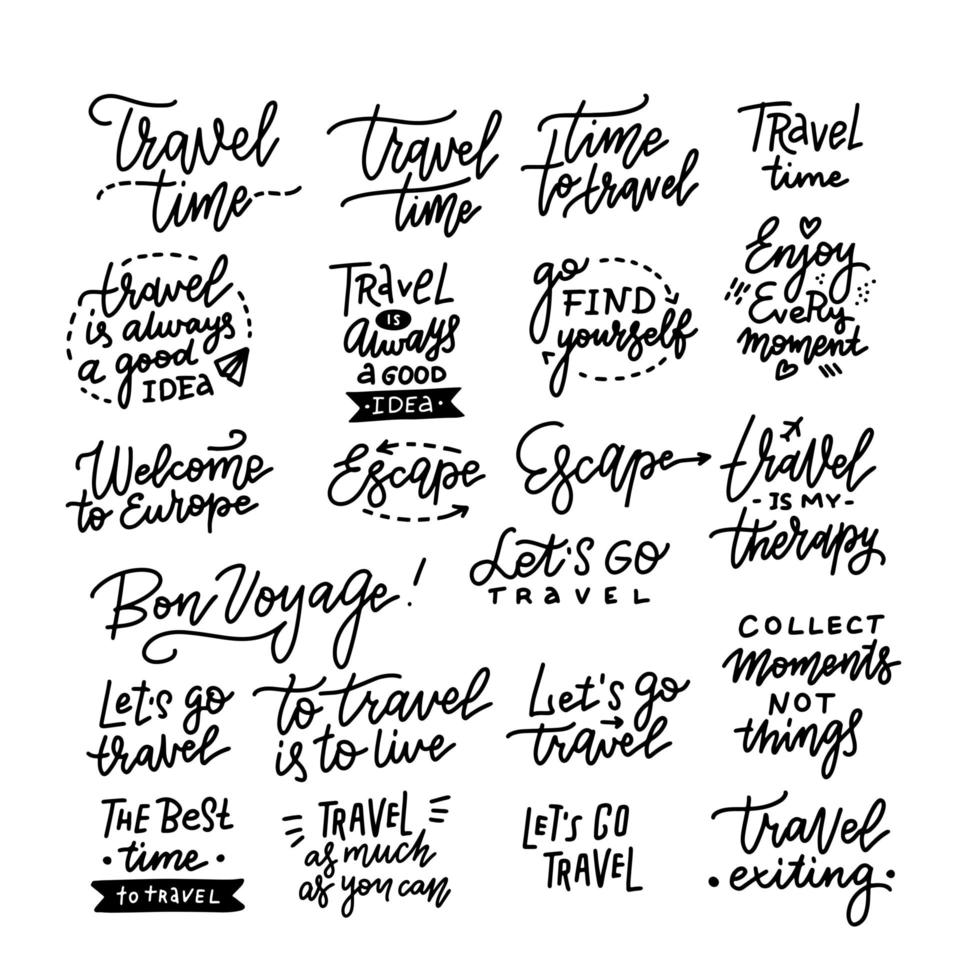 Travel
time
travel
time
time
to travel
TRaveL
time
travel
is always
a good
IDEa
TRaveL
IS
always
a GOOD
·IDEa·
go
FIND
yourself
Enjoy
EveRy
moment
Welcome
to Europe
Escape
Escape
travel
-IS MY-
therapy
Bon Voyage!
Let's GO
TRaVEL
COLLECT
Moments
NOT
things
Let's go
travel
to travel
is to live
Let's go
travel
THE BeSt
·time·
to tRaVEL
TRAVEL
as much
as you can
LET'S GO
TRAVEL
travel
·exiting·